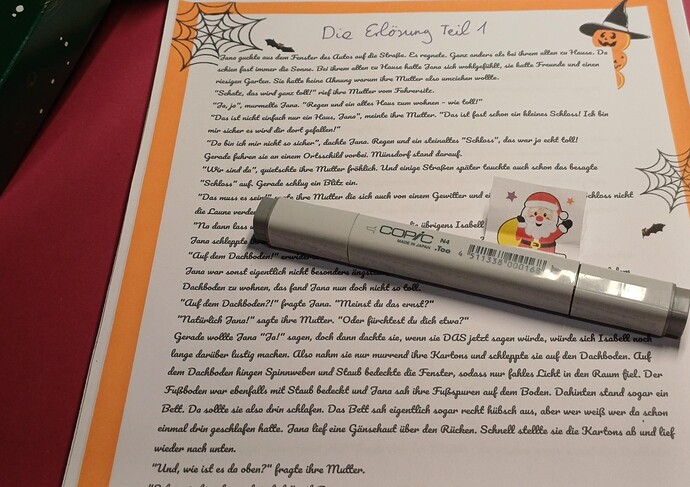 Die Erlösung Teil 1
Jana guckte aus dem Fenster des Autos auf die Straße. Es regnete. Ganz anders als bei ihrem alten zu Hause. Da
schien fast immer die Sonne. Bei ihrem alten zu Hause hatte Jana sich wohlgefühlt, sie hatte Freunde und einen
riesigen Garten. Sie hatte keine Ahnung warum ihre Mutter also umziehen wollte.
"Schatz, das wird ganz toll!" rief ihre Mutter vom Fahrersitz.
"Ja, ja", murmelte Jana. "Regen und ein altes Haus zum wohnen – wie toll!"
"Das ist nicht einfach nur ein Haus, Jana", meinte ihre Mutter. "Das ist fast schon ein kleines Schloss! Ich bin
mir sicher es wird dir dort gefallen!"
"Da bin ich mir nicht so sicher", dachte Jana. Regen und ein steinaltes "Schloss", das war ja echt toll!
Gerade fuhren sie an einem Ortsschild vorbei. Münsdorf stand darauf.
"Wir sind da", quietschte ihre Mutter fröhlich. Und einige Straßen später tauchte auch schon das besagte
"Schloss" auf. Gerade schlug ein Blitz ein.
"Das muss es sein!" ihre Mutter die sich auch von einem Gewitter und schloss nicht
die Laune
"No dann lass übrigens Isabell
Jana schleppte
"Auf dem Dachboden!"
Jana war sonst eigentlich nicht besonders
Dachboden zu wohnen, das fand Jana nun doch nicht so toll.
"Auf dem Dachboden?!" fragte Jana. "Meinst du das ernst?"
"Natürlich Jana!" sagte ihre Mutter. "Oder fürchtest du dich etwa?"
Gerade wollte Jana "Ja!" sagen, doch dann dachte sie, wenn sie DAS jetzt sagen würde, würde sich Isabell noch
lange darüber lustig machen. Also nahm sie nur murrend ihre Kartons und schleppte sie auf den Dachboden. Auf
dem Dachboden hingen Spinnweben und Staub bedeckte die Fenster, sodass nur fahles Licht in den Raum fiel. Der
Fußboden war ebenfalls mit Staub bedeckt und Jana sah ihre Fußspuren auf dem Boden. Dahinten stand sogar ein
Bett. Da sollte sie also drin schlafen. Das Bett sah eigentlich sogar recht hübsch aus, aber wer weiß wer da schon
einmal drin geschlafen hatte. Jana lief eine Gänsehaut über den Rücken. Schnell stellte sie die Kartons ab und lief
wieder nach unten.
"Und, wie ist es da oben?" fragte ihre Mutter.
COPIC N4
MADE IN JAPAN .Too
4 511338 000168